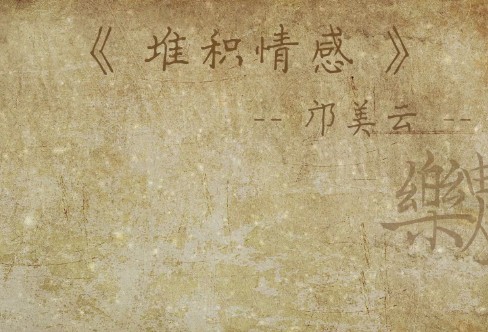 《 堆积情感 》
-- 邝美云 --
樂